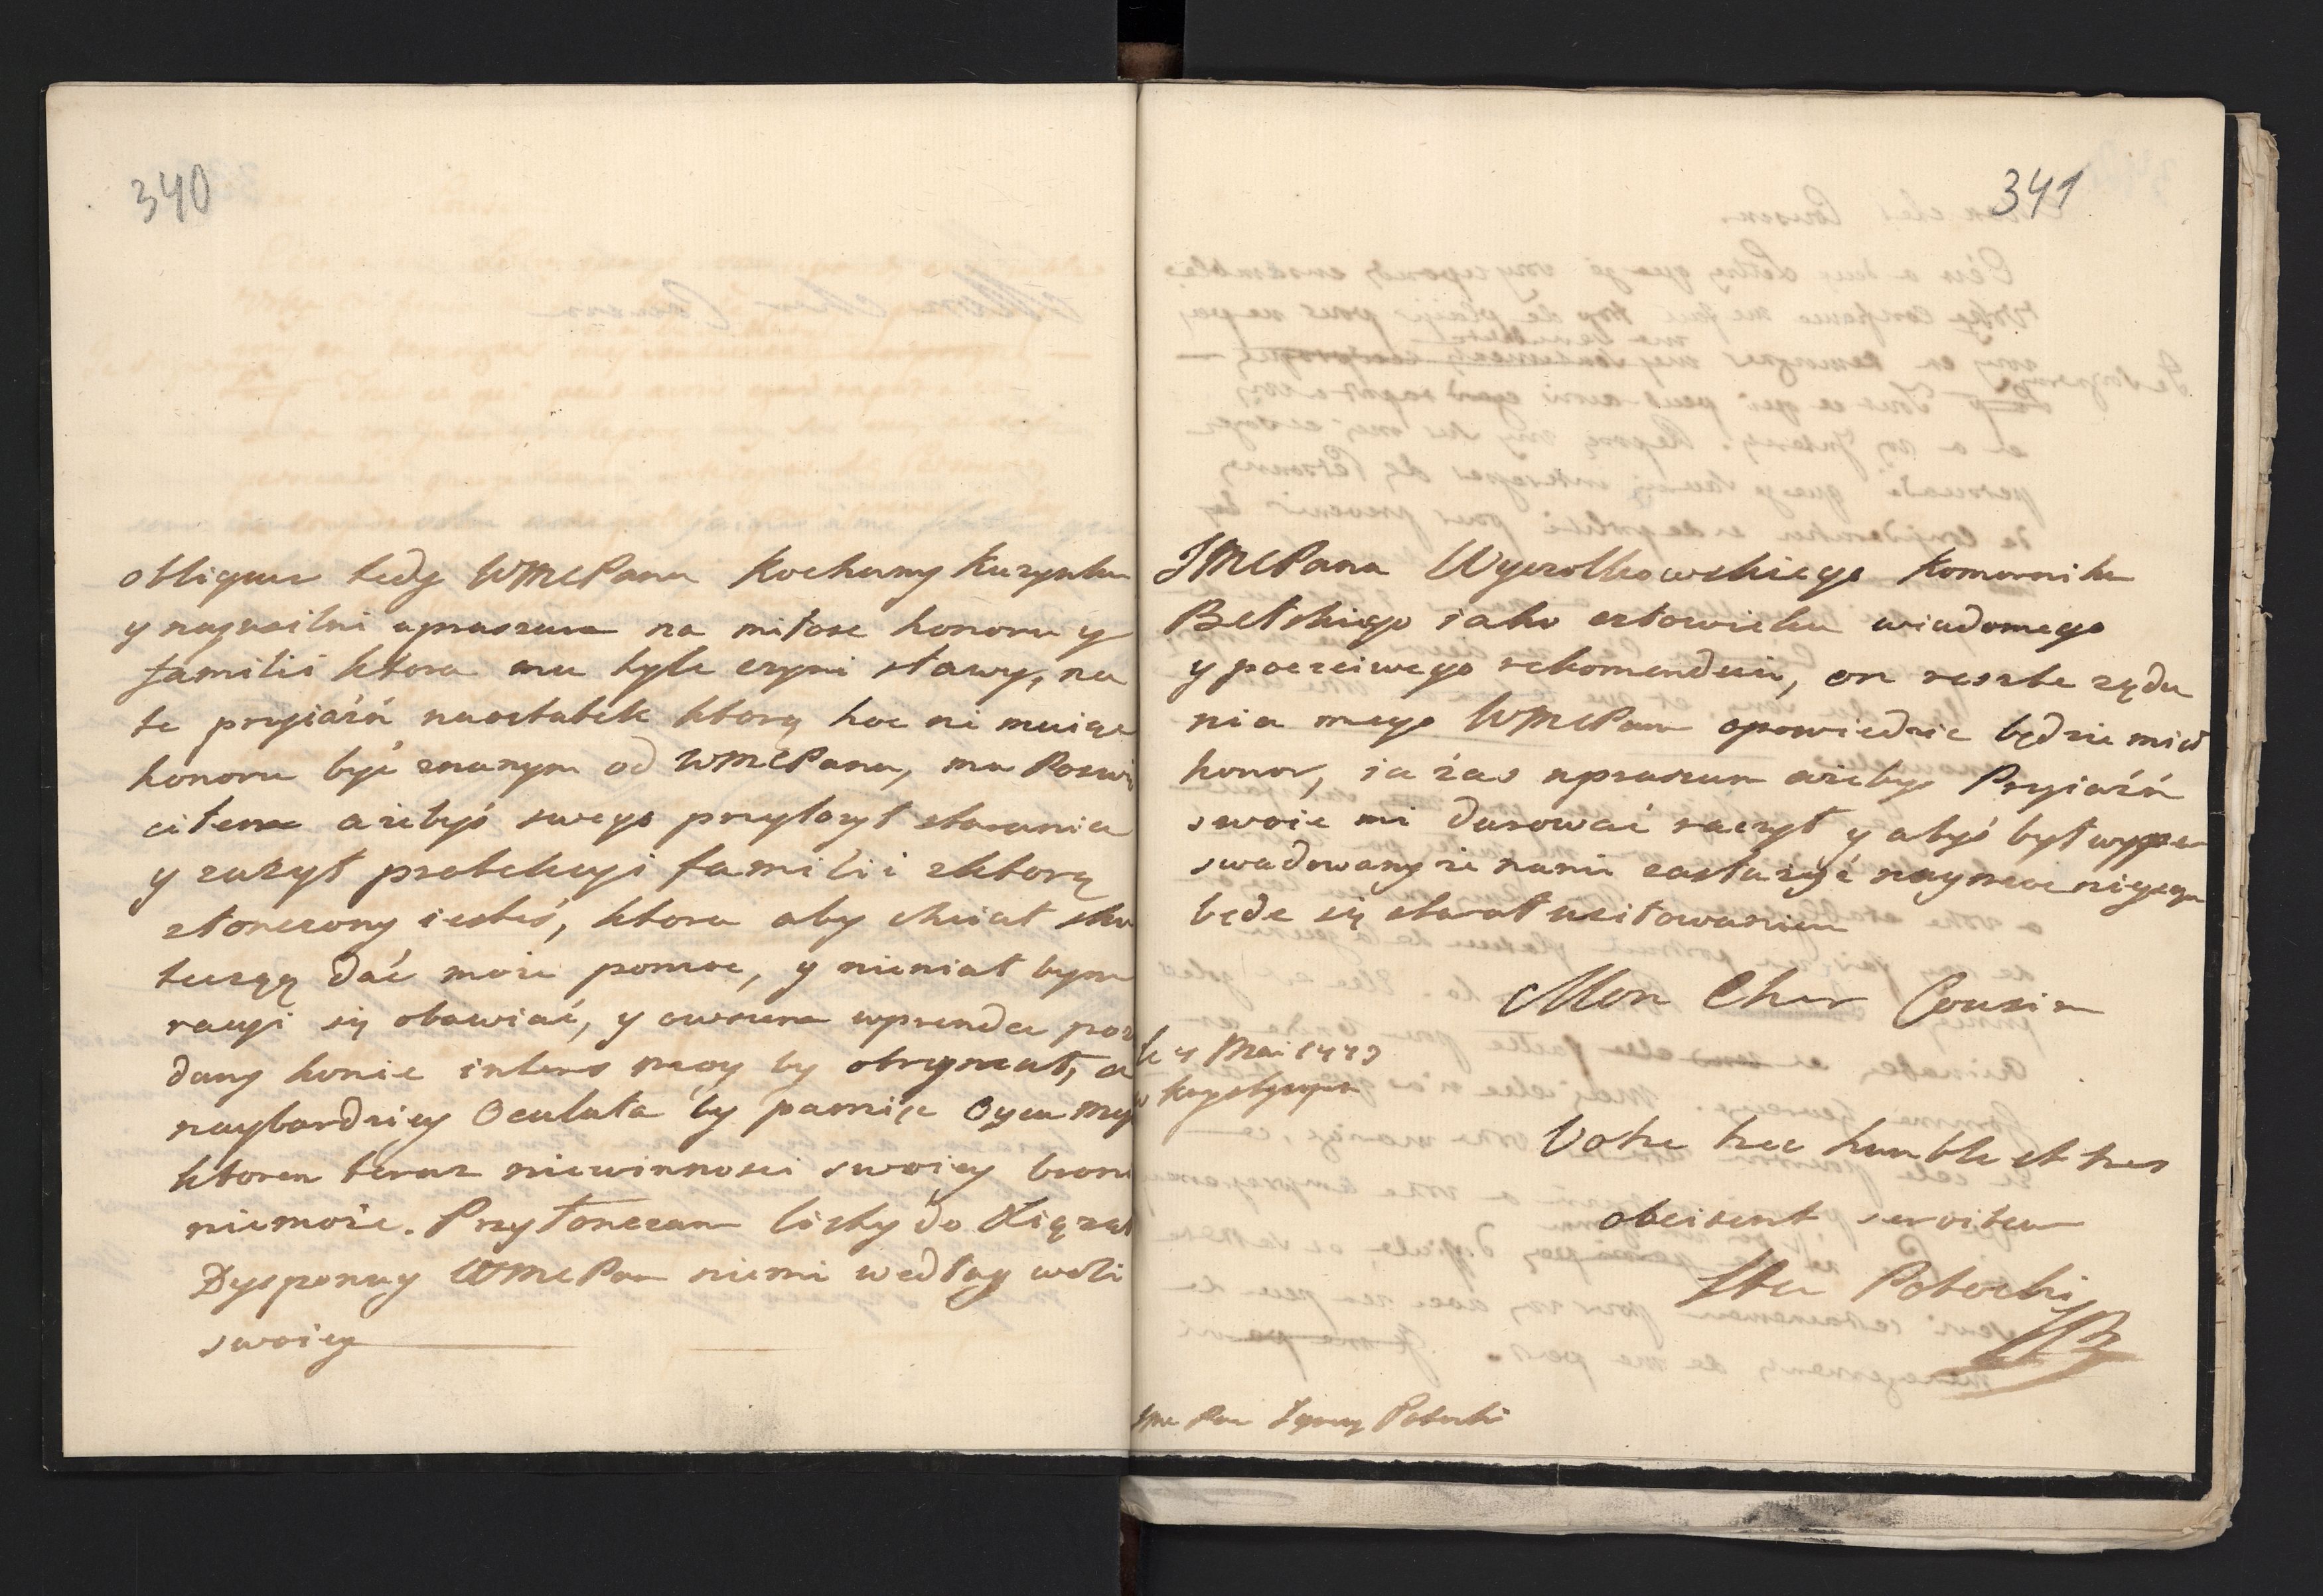 340
obliguie tedy WMCPana Kochany Kuzynku
y nayusilni upraszam na miłosc honoru y
familii ktora mu tyle czyni sławy, na
te pryiaźń naostatek ktorą hoc ni maiąc
honoru być znanym od WMCPana, ma
ażebyś swego przyłozył starania
y zażył protekcyi familii zktorą
złonczony iesteś, ktora aby chciał sku
teczną dać może pomoc, y nimiał bym
racyi się obawiać, y owszem wprendce poz
dany koniec interes moy by otrzymał, a
naybardziey Oculata by pamięc Oyca mego
ktoren teraz niewinnosci swoiey bronic
niemoże. Przyłonczam listy do Xiążąt
Dysponuy WMCPan niemi według woli
swoiey
341
JMCPana Wyczołkowskiego Komornika
Bełskiego iako człowieka wiadomego
y poczciwego rekomenduie, on reszte żąda
nia mego WMCPanu opowiedzic będzie miał
honor, ia żas upraszam ażebyś Pryiaźń
swoie mi darować raczył y abyś był wyper
swadowany że nanie zasłużyć naymocnieyszym
będe się starał usitowaniem
Mon Cher Cousin
le 4 Mai 1773
w Krystynopolu
Votre tres humble et tres
obeisent serviteur
Potocki
Jmc Pan Ignacy Potocki